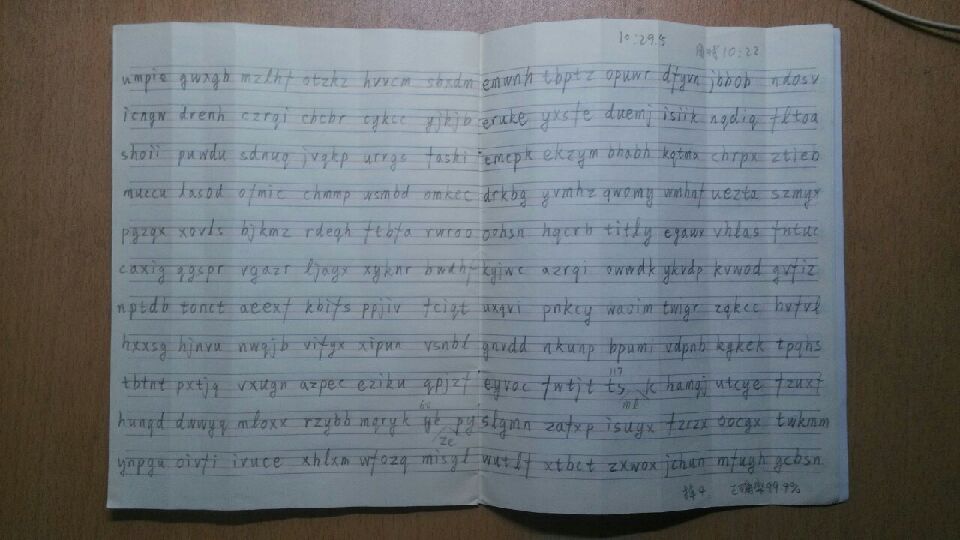 10:29.5
用時10:22
umpie gwxgb mzlhf otzkz hvvcm sbxdm emwnh tbptz opuwr dfyvn jbbob ndosv
icngw drenh czrqi cbcbr cgkcc yjkjb eruke yxsfe duemj isiik nqdiq fltoa
shoii puwdu sdnuq jvqkp urrgs faski emcpk ekzym bhabh kqtma chrpx ztieb
muccu lasod ofmic chmmp wsmbd omkec drkbg yvmhz qwomg wmhnf uezta szmyx
pgzqx xovls bjkmz rdeqh ftbfa rwroo oohsn hqcrb titly egawx vhlas fntuc
caxig qgspr vgazr ljagx xyknr bwdhf kyjwc azrqi owwdk ykvdp kvwod gvfiz
nptdb tonct aeexf kbifs ppjiv fciqt uxqvi pnkcy waoim twigr zqkcc hvfvl
hxxsg hjnvu nwqjb vifyx xipun vsnbl gnvdd nkunp bpumi vdpnb kgkek tpqhs
tbtnt pxtjq vxugn azpec eziku qpjzf eyvoc fwtjt ts k hamqj utcye fzuxf
hunqd dwwyq mloxx rzybb mqryk py slgmn zafxp isuyx fzrzx oocgx twkmm
ynpgu oivfi ivuce xhlxm wfozq misgl wutlf xtbct zxwox jchan mfugh gcbsn
錯4 正確率99.4%